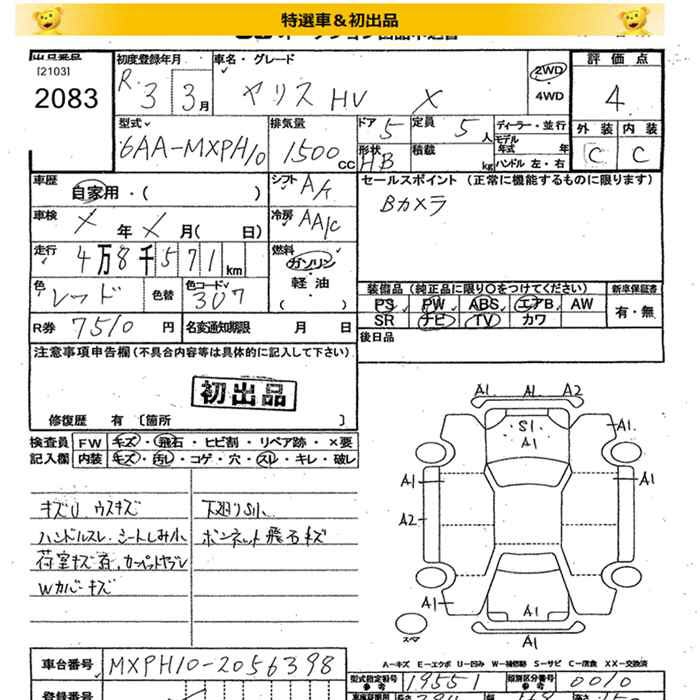 特選車＆初出品
[2103]
2083
初度登録年月
R 3 3月
車名・グレード
ヤリス HV X
2WD
4WD
評価点
4
外装 内装
C C
型式
6AA-MXPH10
排気量
1500cc
ドア 5
定員 5人
形状 HB
積載 kg
ディーラー・並行
モデル年式 年
ハンドル 左・右
車歴
自家用・( )
シフト A/t
車検
年 月( 日)
冷房 AA/c
走行
4万8千571km
燃料
ガソリン
軽油
( )
色
レッド
色替
色コード
3U7
R券 7510円
名変通知期限 月 日
セールスポイント (正常に機能するものに限ります)
Bカメラ
装備品 (純正品に限り○をつけてください)
PS PW ABS エアB AW
SR ナビ TV カワ
新車保証書
有・無
後日品
注意事項申告欄 (不具合内容等は具体的に記入して下さい)
初出品
修復歴 有 〔箇所 〕
検査員記入欄
FW キズ・飛石・ヒビ割・リペア跡・×要
内装 キズ・汚し・コゲ・穴・スレ・キレ・破レ
キズU ウスキズ
ハンドルスレ シートしみ小
荷室キズ
Wカバーキズ
下廻りS小
ボンネット飛石キズ
A1 A1 A2
S1
A1
A1
A1
A1
A2
A1
A1
A1
スペア
A-キズ E-エクボ U-凹み W-補修跡 S-サビ C-腐食 XX-交換済
車台番号 MXPH10-2056398
型式指定番号 参考 19551
類別区分番号 参考 0010
登録番号